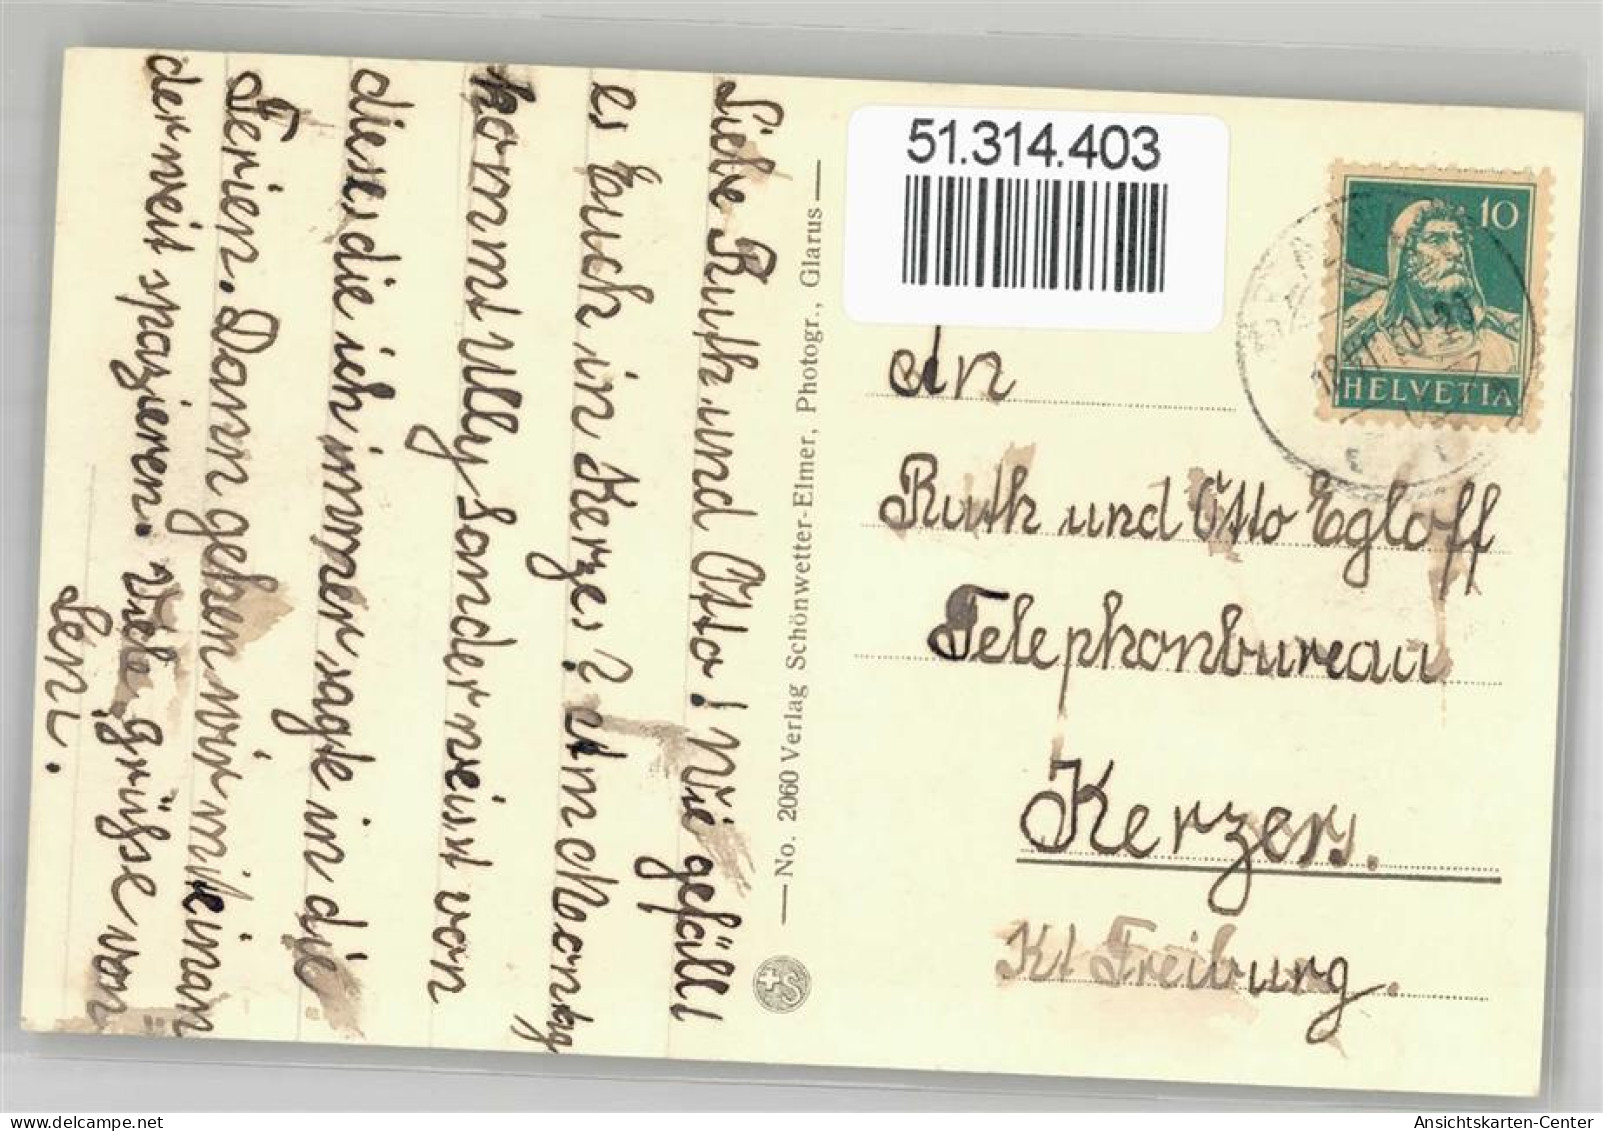 Liebe Ruth und Otto! Wie gefällt
es Euch in Kerzes? Am Montag
kommt Ully Sonderneisst von
dieses die ich immer sagte in die
Ferien. Dann gehen wir miteinan
der weit spazieren. Viele grüsse von
No. 2060 Verlag Schönwetter-Elmer, Photogr., Glarus
51.314.403
10
HELVETIA
An
Ruth und Otto Egloff
Telephonbureau
Kerzers.
Kt Freiburg.
Ansichtskarten-Center